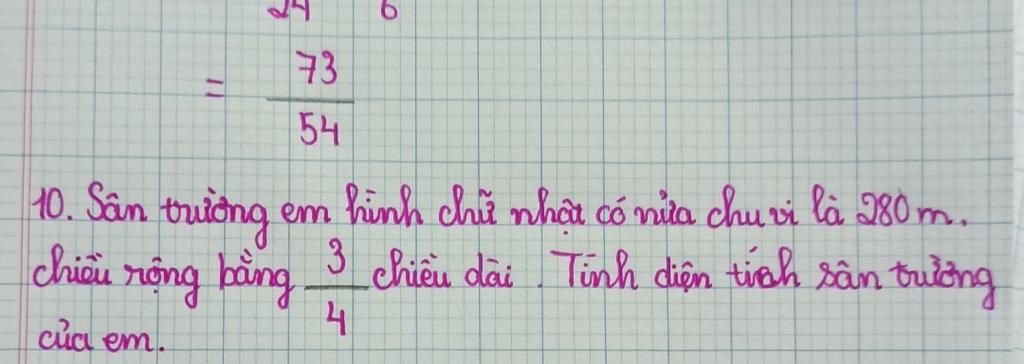 24 6
= 73
54
10. Sân trường em hình chữ nhật có nửa chu vi là 280 m.
chiều rộng bằng 3/4 chiều dài. Tính diện tích sân trường
của em.